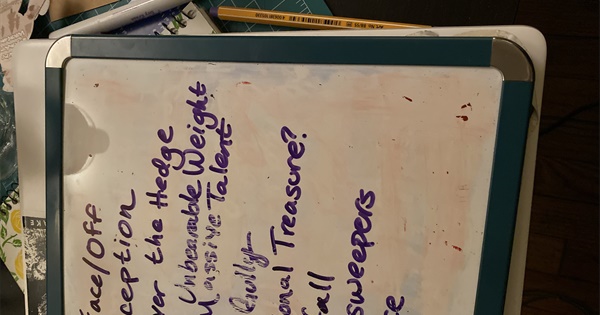 Face/Off
ception
ver the Hedge
Unbearable Weight
Massive Talent
Gully
onal Treasure?
all
sweepers
se